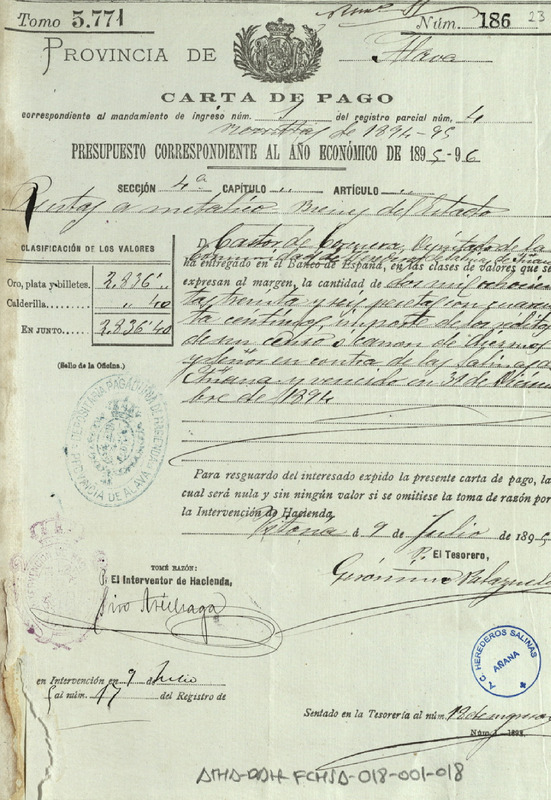 Tomo 5.771
Núm. 186
23
PROVINCIA DE Alava
CARTA DE PAGO
correspondiente al mandamiento de ingreso núm. del registro parcial núm. 4
de 1894-95
PRESUPUESTO CORRESPONDIENTE AL AÑO ECONÓMICO DE 1895-96
SECCIÓN 4ª CAPÍTULO " ARTÍCULO "
Rentas a metalico Bienes del Estado
CLASIFICACIÓN DE LOS VALORES
Oro, plata y billetes. 2.836'"
Calderilla " 40
EN JUNTO 2.836'40
(Sello de la Oficina.)
D. Castor de Corcuera, Diputado de la
Comunidad de herederos de Salinas de Añana
ha entregado en el Banco de España, en las clases de valores que se
expresan al margen, la cantidad de dos mil ochocien
tas treinta y seis pesetas con cuaren
ta centimos, importe de los réditos
de un censo o canon de diezmos
y señor en contra de las Salinas de
Añana y vencido en 31 de Diciem
bre de 1894
Para resguardo del interesado expido la presente carta de pago, la
cual será nula y sin ningún valor si se omitiese la toma de razón por
la Intervención de Hacienda.
Vitoria á 9 de Julio de 1895
P. El Tesorero,
Gerónimo
TOMÉ RAZÓN:
P. El Interventor de Hacienda,
DEPOSITARIA PAGADURIA DE HACIENDA
PROVINCIA DE ALAVA
en Intervención en 9 Julio
al núm. 17 del Registro de
T. C. HEREDEROS SALINAS
AÑANA
Sentado en la Tesorería al núm. 12 de ingresos
ATHA-DAH-FCHSA-018-001-018